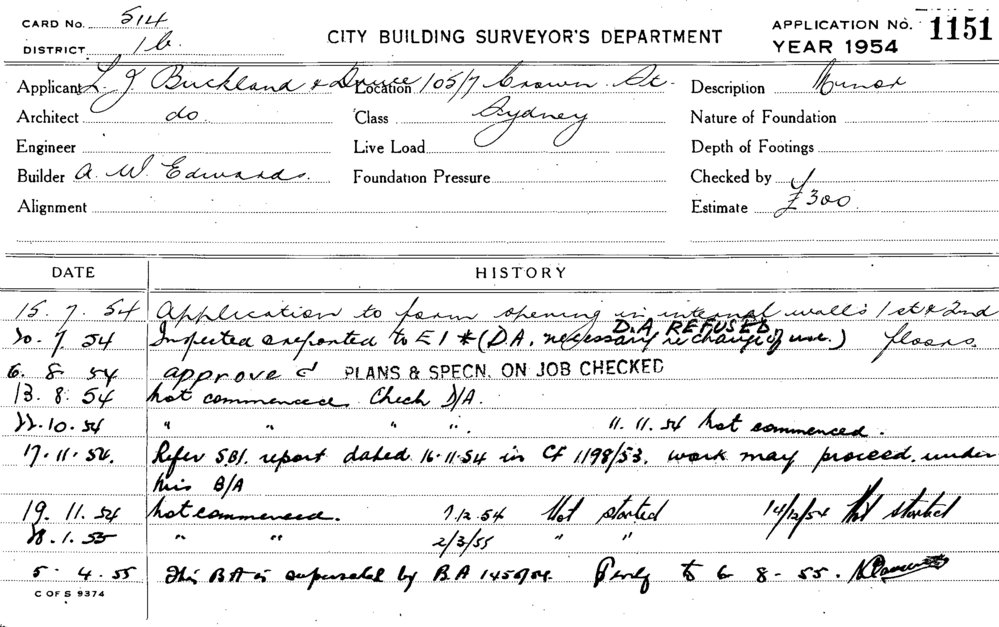 CARD No. 514
DISTRICT 1b.
CITY BUILDING SURVEYOR'S DEPARTMENT
APPLICATION No. 1151
YEAR 1954
Applicant L. J. Buckland & Druce Location 105/7 Crown St. Description Minor
Architect do. Class Sydney Nature of Foundation
Engineer Live Load Depth of Footings
Builder A. W. Edwards. Foundation Pressure Checked by
Alignment Estimate £300.
DATE HISTORY
15. 7. 54 Application to form opening in internal walls 1st & 2nd
floors.
D.A. REFUSED
20. 7 54 Inspected & reported to E1 * (D.A. necessary re change of use.)
6. 8 54 approved PLANS & SPECN. ON JOB CHECKED
13. 8. 54 not commenced. Check D/A.
22.10.54 " " " " 11. 11. 54 not commenced.
17.11.54. Refer S.B.I. report dated 16.11.54 in CF 1198/53. work may proceed under
this B/A
19. 11. 54 not commenced. 7.12.54 Not started 14/12/54 Not started
18.1.55 " " 2/3/55 " "
5. 4. 55 This BA is superseded by B.A 1450/54. to 6 8 - 55.
C OF S 9374